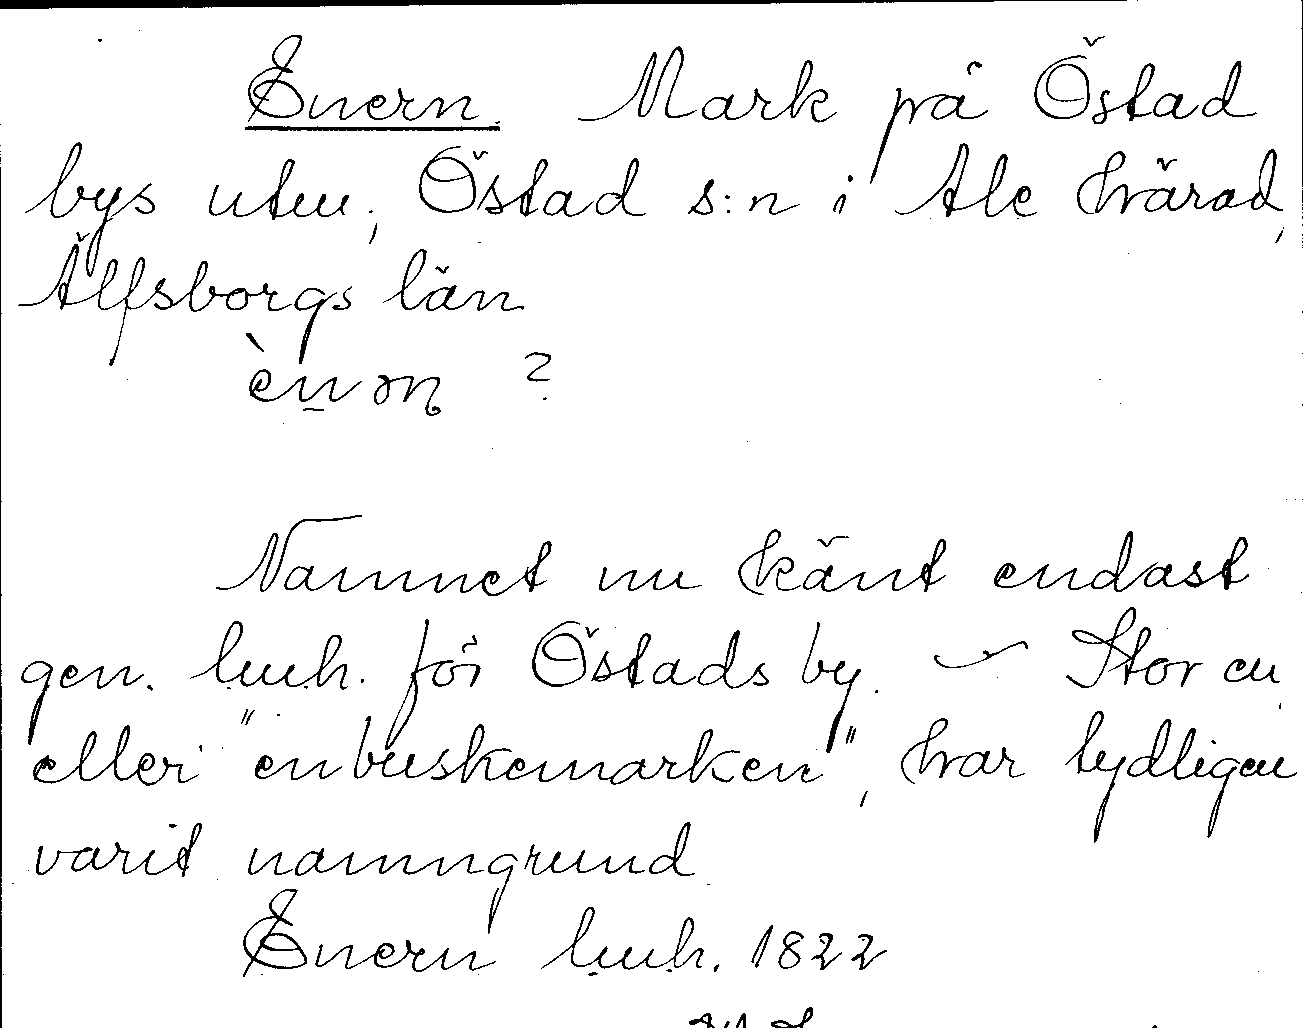 Enern. Mark på Östad
bys utm., Östad s:n i Ale härad,
Älfsborgs län
?
Namnet nu känt endast
gen. lmh. för Östads by. – Stor en
eller "enbuskemarken", har tydligen
varit namngrund
Enern lmh. 1822